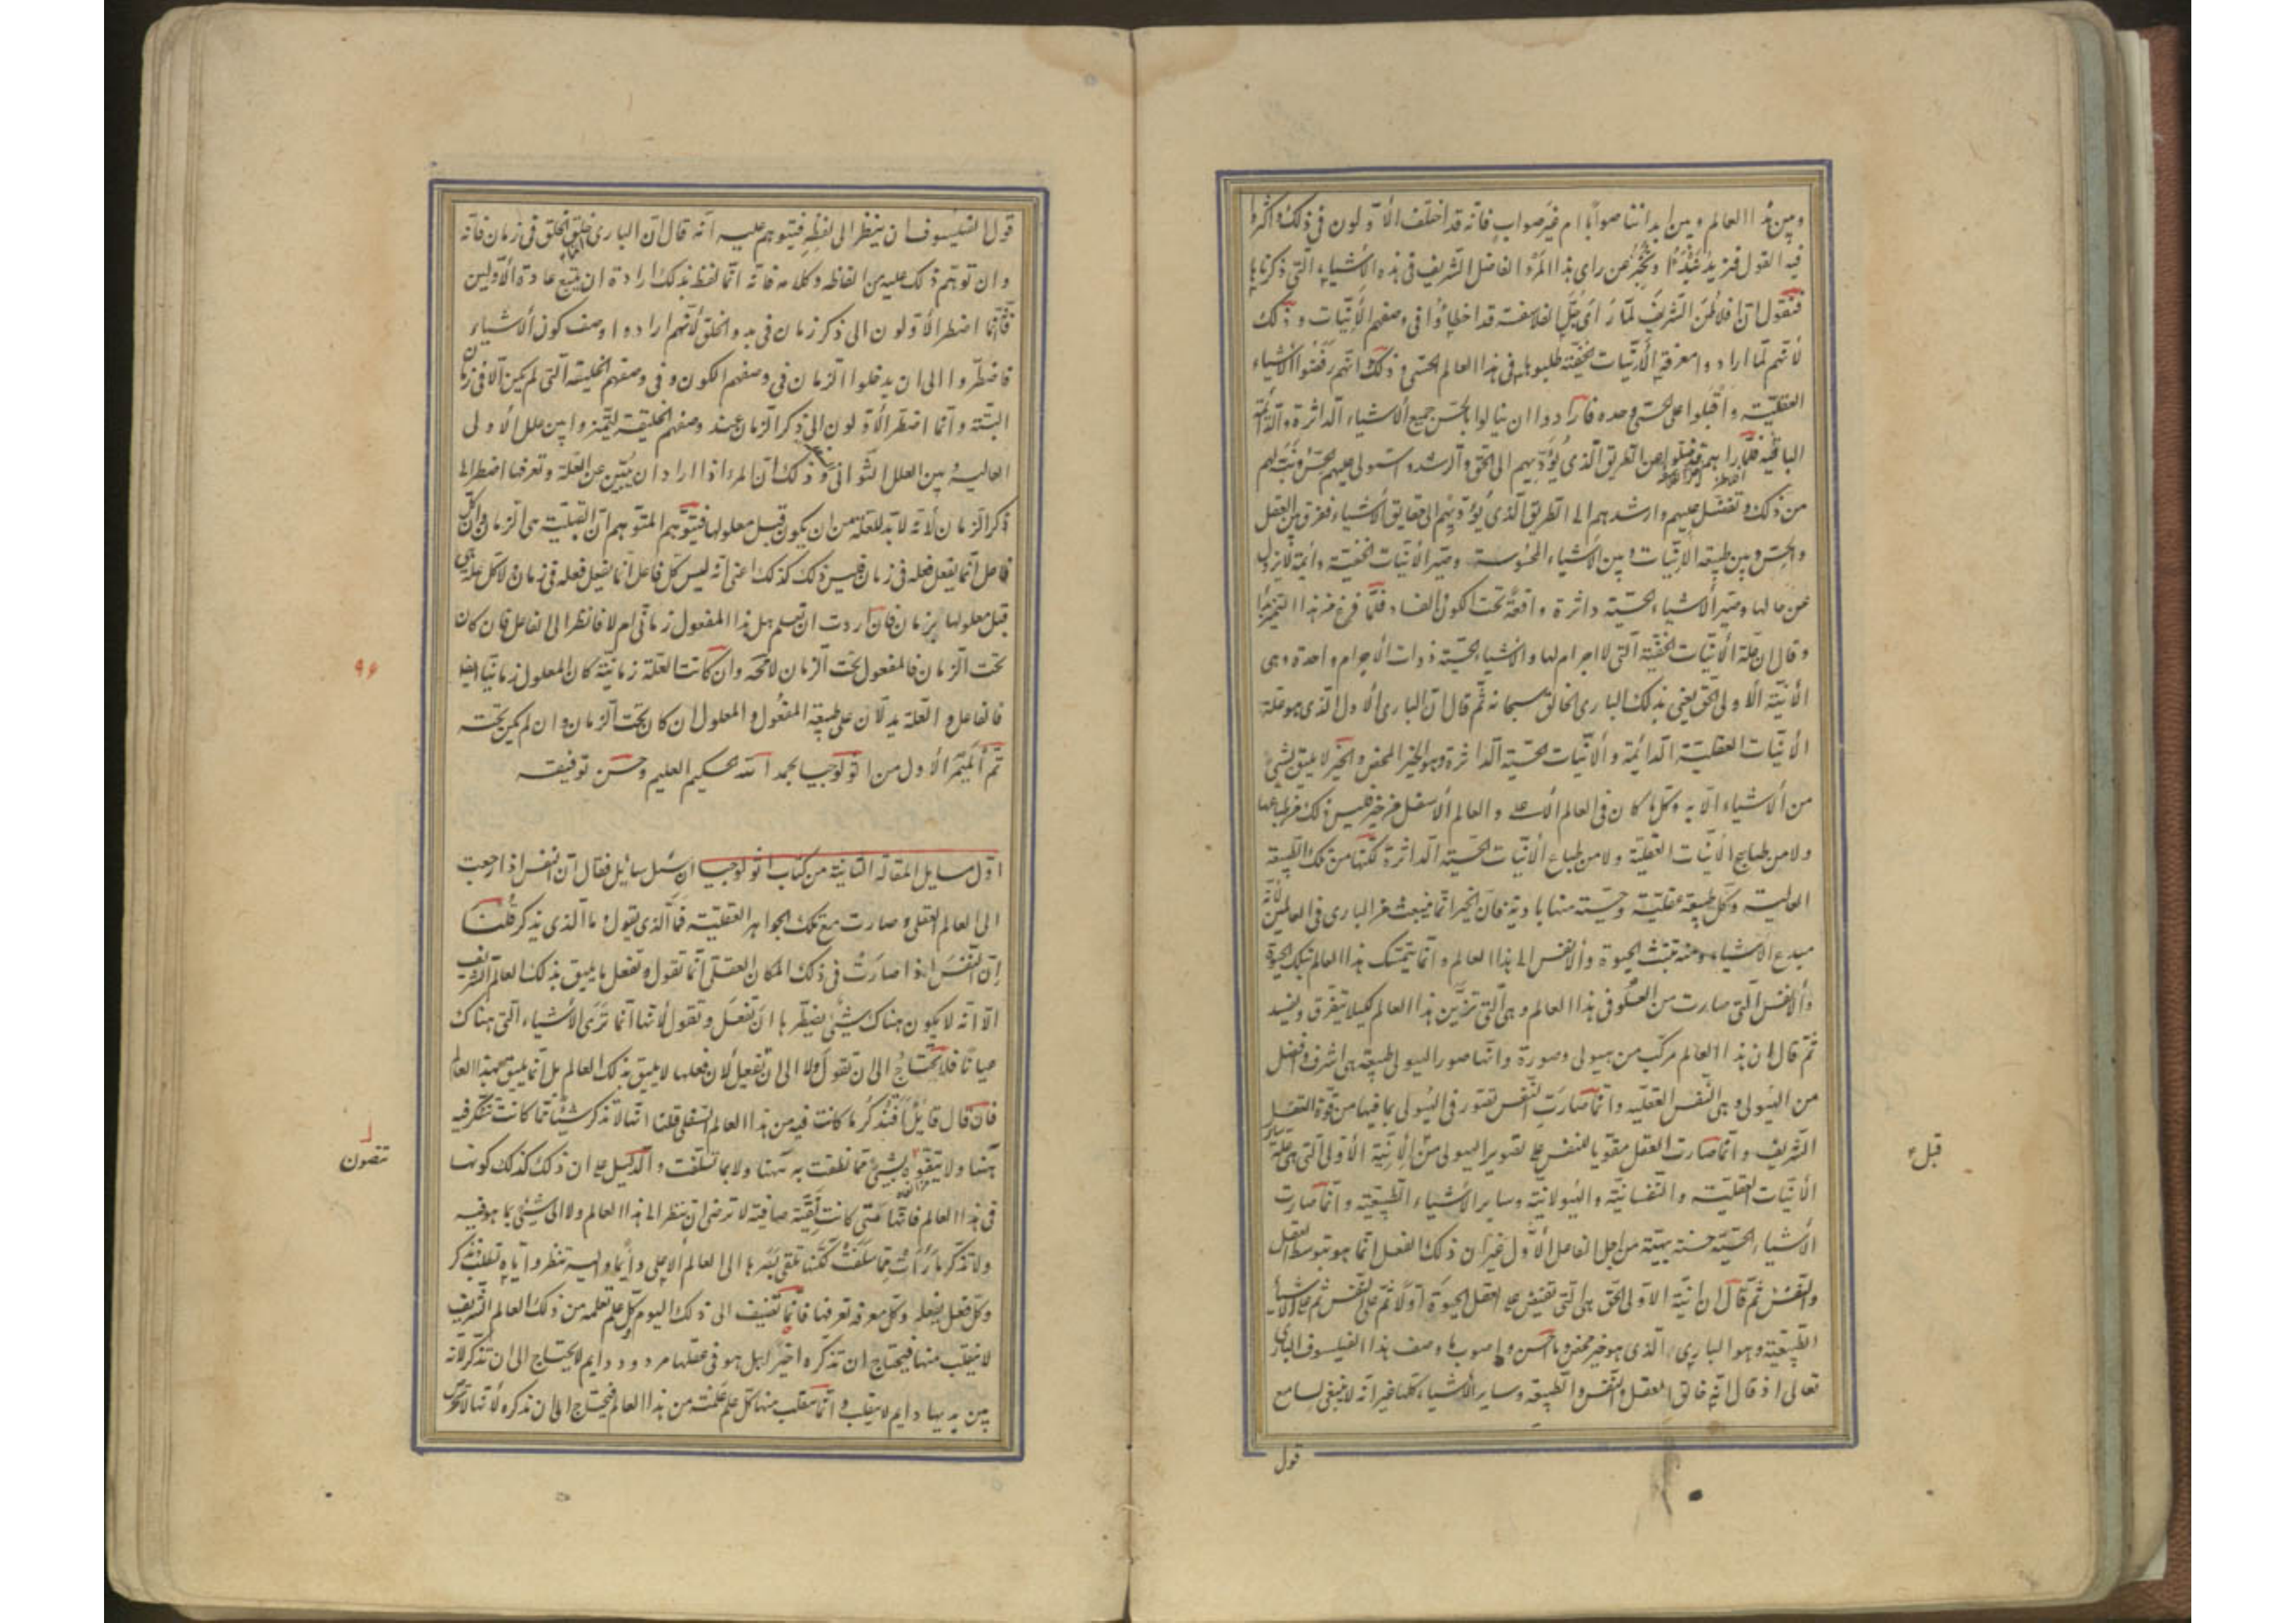 وبين هذا العالم وبين ابداننا صوابا ام غير صواب فانه قد اختلف الأولون في ذلك واكثروا
فيه القول فنريد ان نبدأ ونخبر عن راى هذا المرء الفاضل الشريف في هذه الأشياء التي ذكرناها
فنقول ان افلاطن الشريف لما رأى جل الفلاسفة قد اخطاؤا في وصفهم الأنيات وذلك
لأنهم لما ارادوا معرفة الأنيات الخفية طلبوها في هذا العالم الحسى وذلك انهم رفضوا الأشياء
العقلية واقبلوا على الحسى وحده فارادوا ان ينالوا بالحس جميع الأشياء الداثرة والدائمة
الباقية فلما راهم قد ضلوا عن الطريق الذى يؤديهم الى الحق والرشد واستولى عليهم الحس رثى لهم
من ذلك وتفضل عليهم وارشدهم الى الطريق الذى يؤديهم الى حقايق الأشياء ففرق بين العقل
والحس وبين طبيعة الأنيات وبين الأشياء المحسوسة وصير الأنيات الخفية دائمة لا تزول
عن حالها وصير الأشياء الحسية داثرة واقعة تحت الكون والفساد فلما فرغ من هذا التمييز بدأ
وقال ان علة الأنيات الخفية التى لا اجرام لها والأشياء الحسية ذوات الأجرام واحدة وهى
الأنية الأولى الحق يعنى بذلك البارى الخالق سبحانه ثم قال ان البارى الأول الذى هو علة
الأنيات العقلية الدائمة والأنيات الحسية الداثرة وهو الخير المحض والخير لا يليق بشئ
من الأشياء الا به وكل ما كان فى العالم الأعلى والعالم الأسفل من خير فليس ذلك من طباعها
ولا من طبايع الأنيات العقلية ولا من طباع الأنيات الحسية الداثرة لكنها من تلك الطبيعة
العالية وكل طبيعة عقلية وحسية منها بادية فان الخير انما ينبعث من البارى فى العالمين لأنه
مبدع الأشياء ومنه تنبث الحيوة والأنفس الى هذا العالم وانما يتمسك هذا العالم بتلك الحيوة
والأنفس التى صارت من العلو فى هذا العالم وهى التى تزين هذا العالم لكيلا يتفرق ويفسد
ثم قال ان هذا العالم مركب من هيولى وصورة وانما صور الهيولى طبيعة هى اشرف وافضل
من الهيولى وهى النفس العقلية وانما صارت النفس تصور فى الهيولى بما فيها من قوة العقل
الشريف وانما صارت العقل مقويا للنفس على تصوير الهيولى من الأنية الأولى التى هى علة ساير
الأنيات العقلية والنفسانية والهيولانية وساير الأشياء الطبيعية وانما صارت
الأشياء الحسية حسنة بهية من اجل الفاعل الأول غير ان ذلك الفعل انما هو بتوسط العقل
والنفس ثم قال ان انية الأولى الحق هى التى تفيض على العقل الحيوة اولا ثم على النفس ثم على الأشياء
الطبيعية وهو البارى الذى هو خير محض وما احسن واصوب ما وصف هذا الفيلسوف البارى
تعالى اذ قال انه خالق العقل والنفس والطبيعة وساير الأشياء كلها غير انه لا ينبغى لسامع
قول
قبل
قول الفيلسوف ان ينظر الى لفظه فيتوهم عليه انه قال ان البارى خلق الخلق فى زمان فانه
وان توهم ذلك عليه من الفاظه وكلامه فانه انما لفظ بذلك ارادة ان يتبع عادة الأولين
فانما اضطر الأولون الى ذكر زمان فى بدو الخلق لأنهم ارادوا وصف كون الأشياء
فاضطروا الى ان يدخلوا الزمان فى وصفهم الكون وفى وصفهم الخليقة التى لم يكن الا فى زمان
البتة وانما اضطر الأولون الى ذكر الزمان عند وصفهم الخليقة ليميزوا بين علل الأولى
العالية وبين العلل الثوانى وذلك ان المرء اذا اراد ان يبين عن العلة وتعرفها اضطر الى
ذكر الزمان لأنه لا بد للعلة من ان يكون قبل معلولها فيتوهم المتوهم ان القبلية هى الزمان وان كل
فاعل انما يفعل فعله فى زمان فليس ذلك كذلك اعنى انه ليس كل فاعل انما يفعل فعله فى زمان ولا كل علة هى
قبل معلولها بزمان فان اردت ان تعلم هل هذا المفعول زمانى ام لا فانظر الى الفاعل فان كان
تحت الزمان فالمفعول تحت الزمان لا محه وان كانت العلة زمانية كان المعلول زمانيا ايضا
فالفاعل والعلة يدلان على طبيعة المفعول والمعلول ان كان تحت الزمان وان لم يكن تحته
تم الميمر الأول من اثولوجيا بحمد الله الحكيم العليم وحسن توفيقه
اول مسايل المقالة الثانية من كتاب اثولوجيا ان سئل سائل فقال ان النفس اذا رجعت
الى العالم العقلى وصارت مع تلك الجواهر العقلية فما الذى يقول وما الذى يذكر قلنا
ان النفس اذا صارت فى ذلك المكان العقلى انما تقول وتفعل ما يليق بذلك العالم الشريف
الا انه لا يكون هناك شئ يضطرها ان تفعل وتقول لأنها انما ترى الأشياء التى هناك
عيانا فلا تحتاج الى ان تقول ولا الى ان تفعل لأن فعلها لا يليق بذلك العالم بل انما يليق بهذا العالم
فان قال قائل أفتذكر ما كانت فيه من هذا العالم السفلى قلنا انها لا تذكر شيئا مما كانت تتفكر فيه
ههنا ولا يتفوه بشئ مما نطقت به ههنا ولا بما تسلفت والدليل على ان ذلك كذلك كونها
فى هذا العالم فانها متى كانت نقية صافية لا ترضى ان تنظر الى هذا العالم ولا الى شئ مما هو فيه
ولا تذكر ما رأت مما سلفت لكنها تلقى بصرها الى العالم الأعلى دائما واليه تنظر واياه تطلب وتذكر
وكل فعل يفعله وكل معرفة تعرفها فانما تضيف الى ذلك اليوم كل علم تعلمه من ذلك العالم الشريف
لا ينقلب منها فيحتاج ان تذكره اخيرا بل هو فى عقلها مردود دايم لا يحتاج الى ان تذكر لأنه
بين يديها دايم لا ينقلب وانما ينقلب منها كل علم علمته من هذا العالم فيحتاج الى ان تذكره لأنها لا تحرص
٩۶
تصون